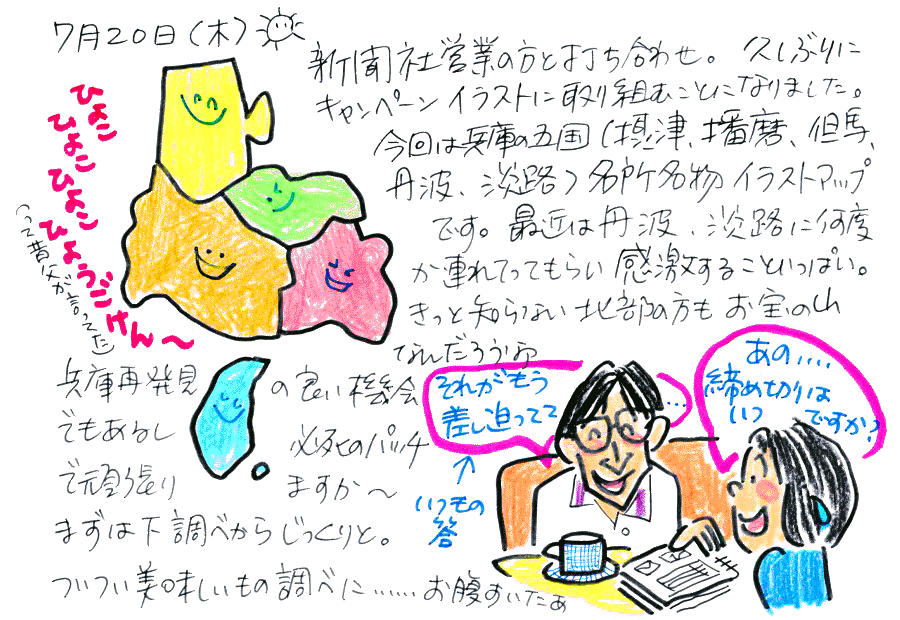 7月20日(木)
新聞社営業の方と打ち合わせ。久しぶりに
キャンペーンイラストに取り組むことになりました。
今回は兵庫の五国(摂津、播磨、但馬、
丹波、淡路)名所名物イラストマップ
です。最近は丹波、淡路に何度
か連れてってもらい感激することいっぱい。
きっと知らない北部の方もお宝の山
なんだろうな
ひょこ
ひょこひょこ
ひょうごけん〜
(って昔父が言ってた)
兵庫再発見の良い機会
でもあるし必死のパッチ
で頑張りますか〜
まずは下調べからじっくりと。
ついつい美味しいもの調べに……お腹すいたぁ
あの…
締め切りは
いつですか?
…
それがもう
差し迫ってて
↑
いつもの
答